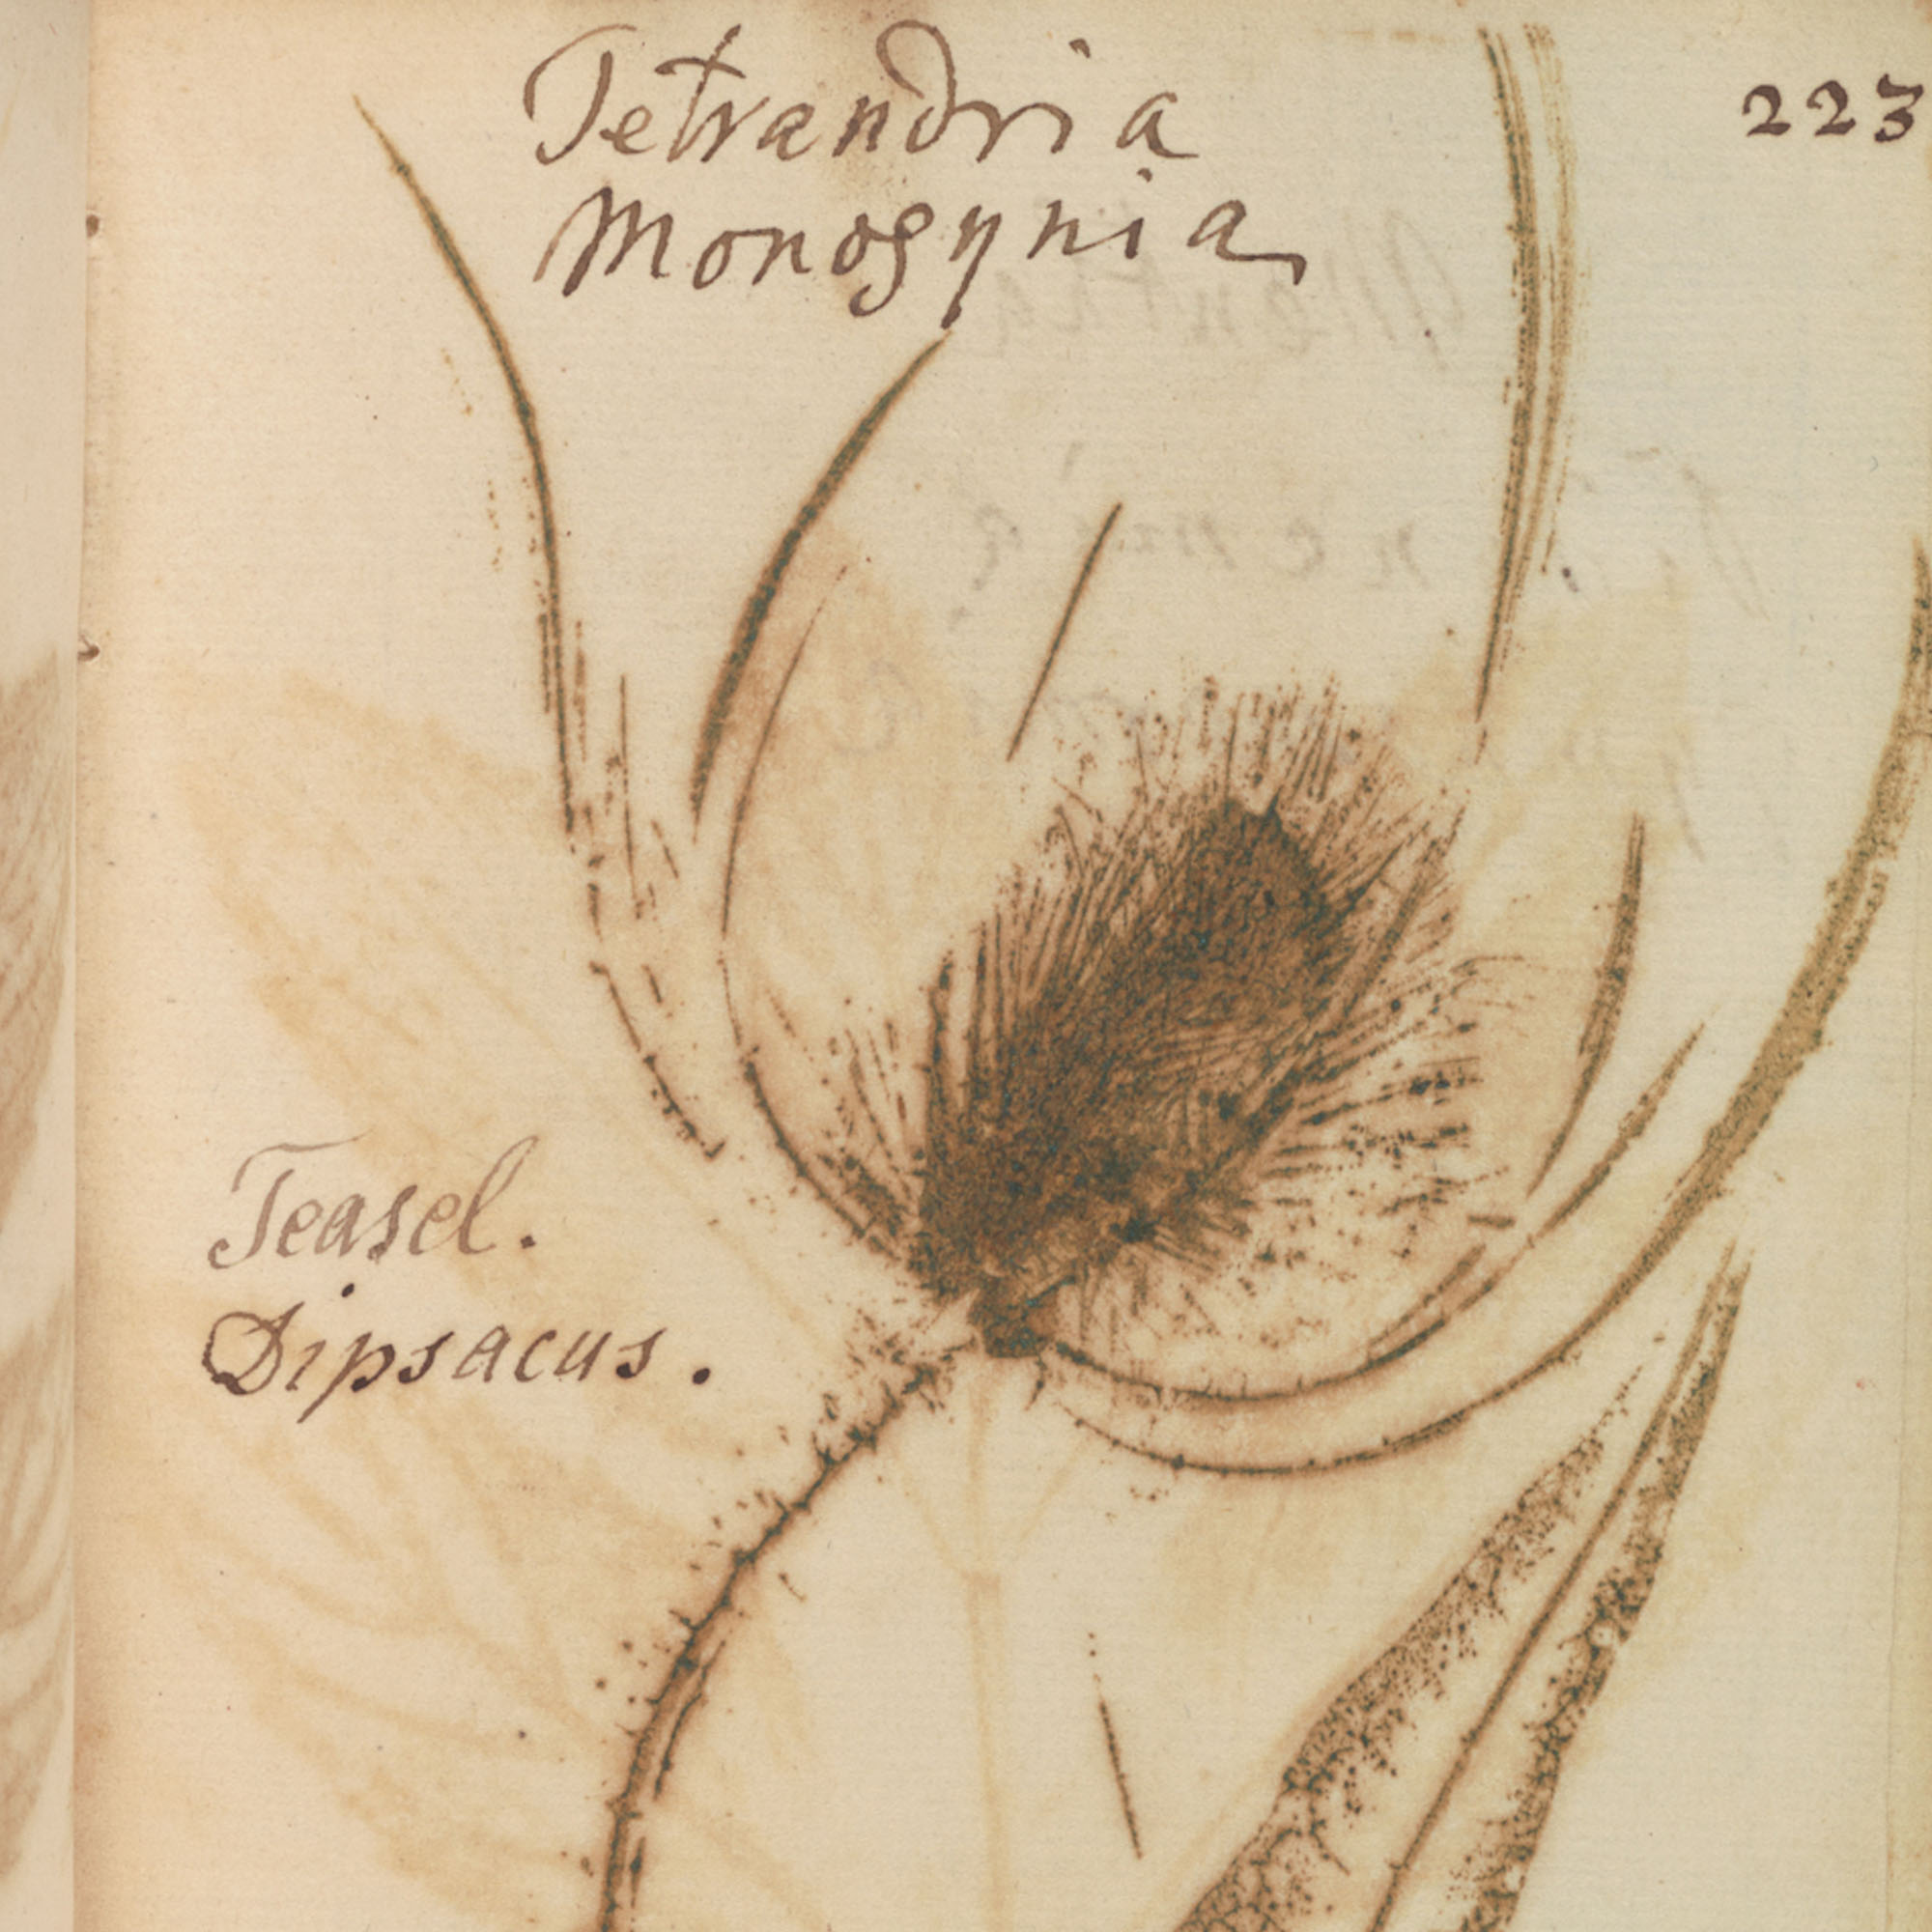 Tetrandria
223
Monogynia
Teasel.
Dipsacus.